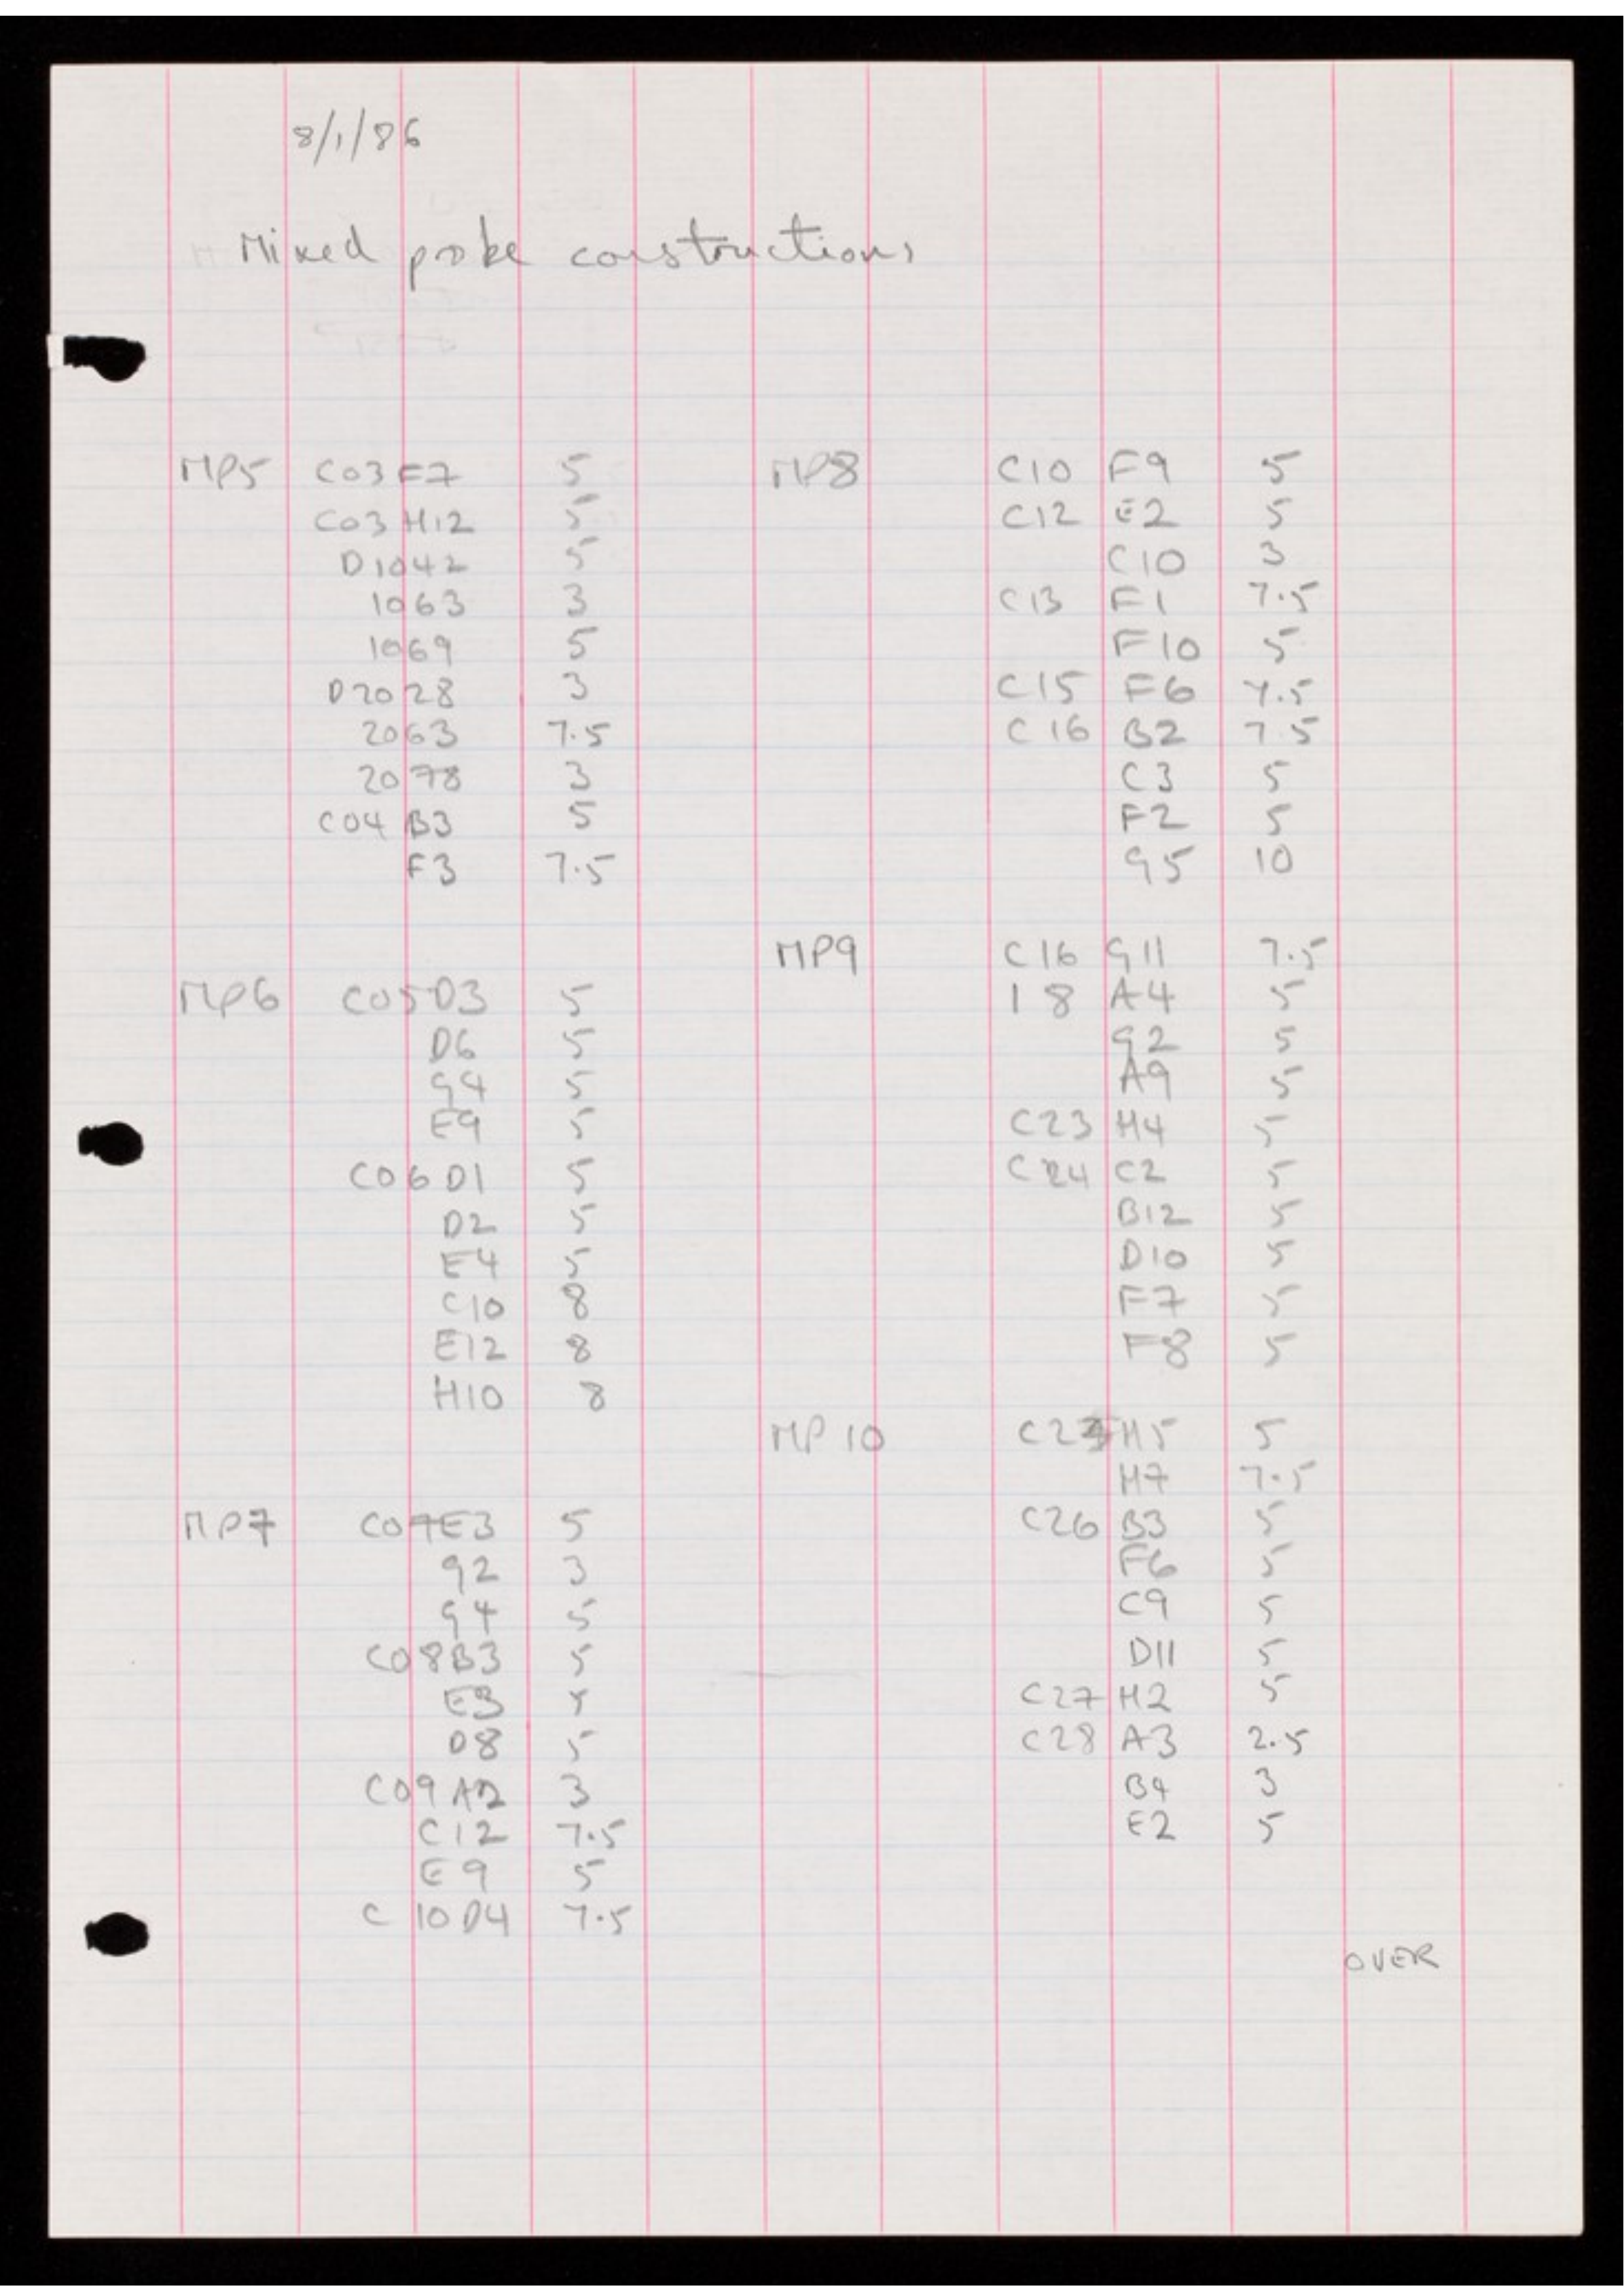 8/1/86
Mixed probe constructions
MP5 C03 F7 5
C03 H12 5
D1042 5
1063 3
1069 5
D2028 3
2063 7.5
2078 3
C04 B3 5
F3 7.5
MP6 C05 D3 5
D6 5
G4 5
E9 5
C06 D1 5
D2 5
E4 5
C10 8
E12 8
H10 8
MP7 C07 E3 5
G2 3
G4 5
C08 B3 5
E3 5
D8 5
C09 A2 3
C12 7.5
E9 5
C10 D4 7.5
MP8 C10 F9 5
C12 E2 5
C10 3
C13 F1 7.5
F10 5
C15 F6 7.5
C16 B2 7.5
C3 5
F2 5
G5 10
MP9 C16 G11 7.5
18 A4 5
G2 5
A9 5
C23 H4 5
C24 C2 5
B12 5
D10 5
F7 5
F8 5
MP10 H5 5
H7 7.5
C26 B3 5
F6 5
C9 5
D11 5
C27 H2 5
C28 A3 2.5
B4 3
E2 5
OVER